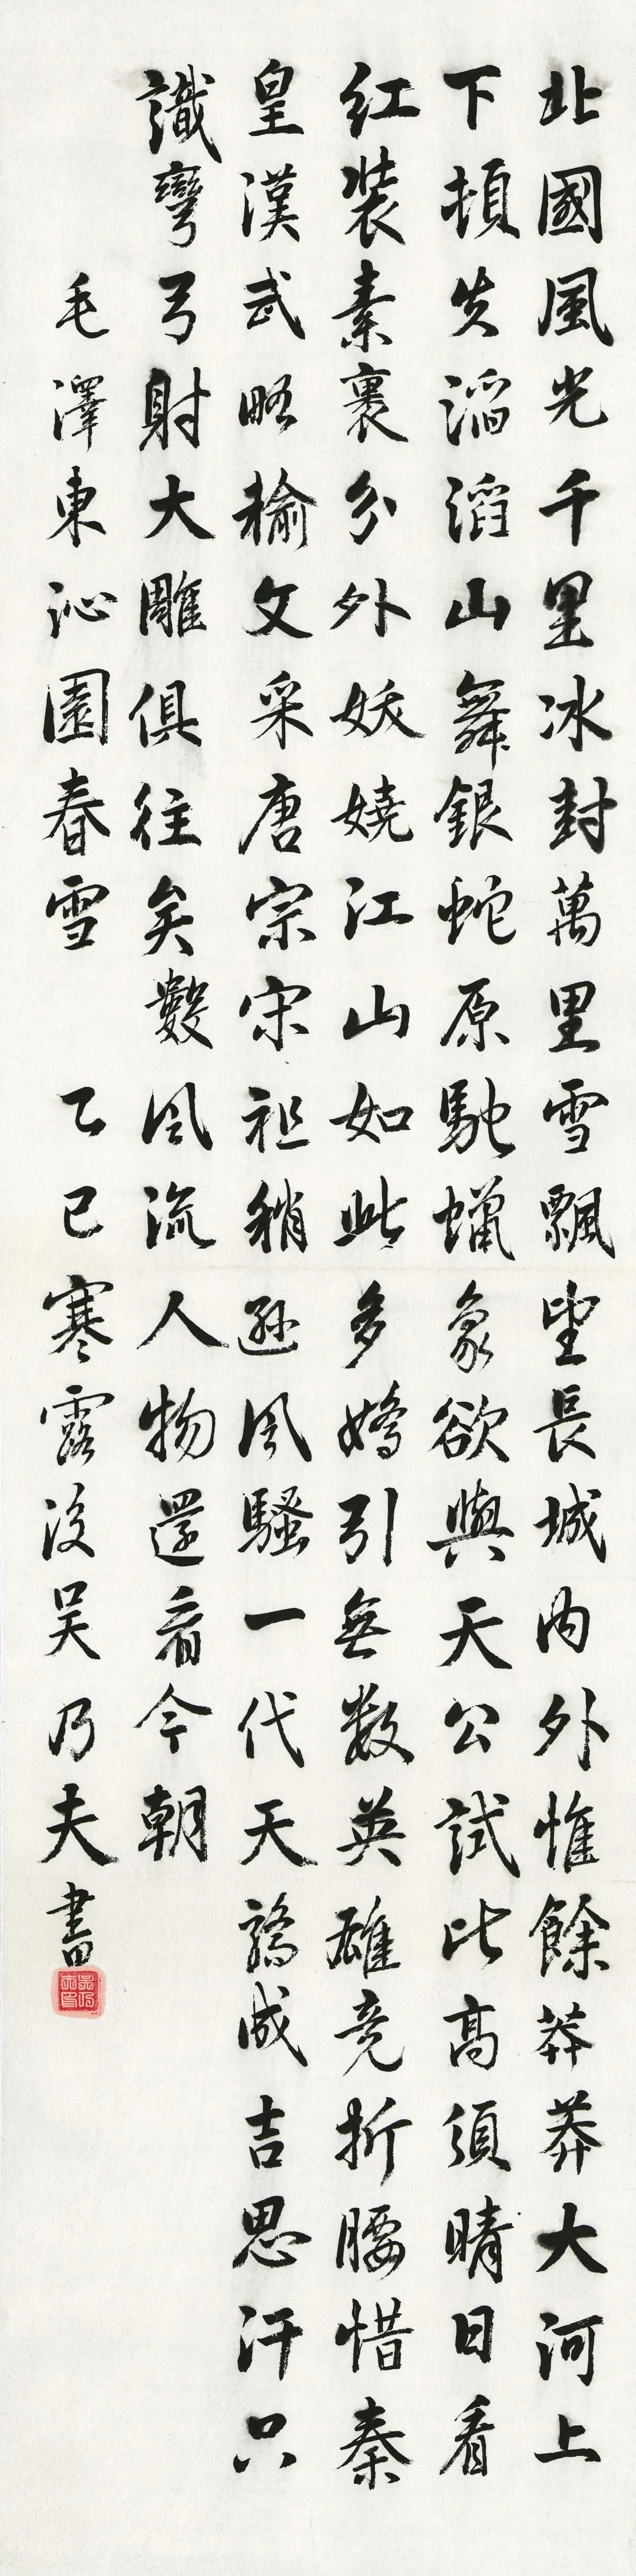 北國風光千里冰封萬里雪飄望長城内外惟餘莽莽大河上
下頓失滔滔山舞銀蛇原馳蠟象欲與天公試比高須晴日看
紅裝素裹分外妖嬈江山如此多嬌引無数英雄竞折腰惜秦
皇漢武略輸文采唐宗宋祖稍遜風騷一代天驕成吉思汗只
識彎弓射大雕俱往矣數風流人物還看今朝
毛澤東沁園春雪 乙巳寒露後吴乃夫書